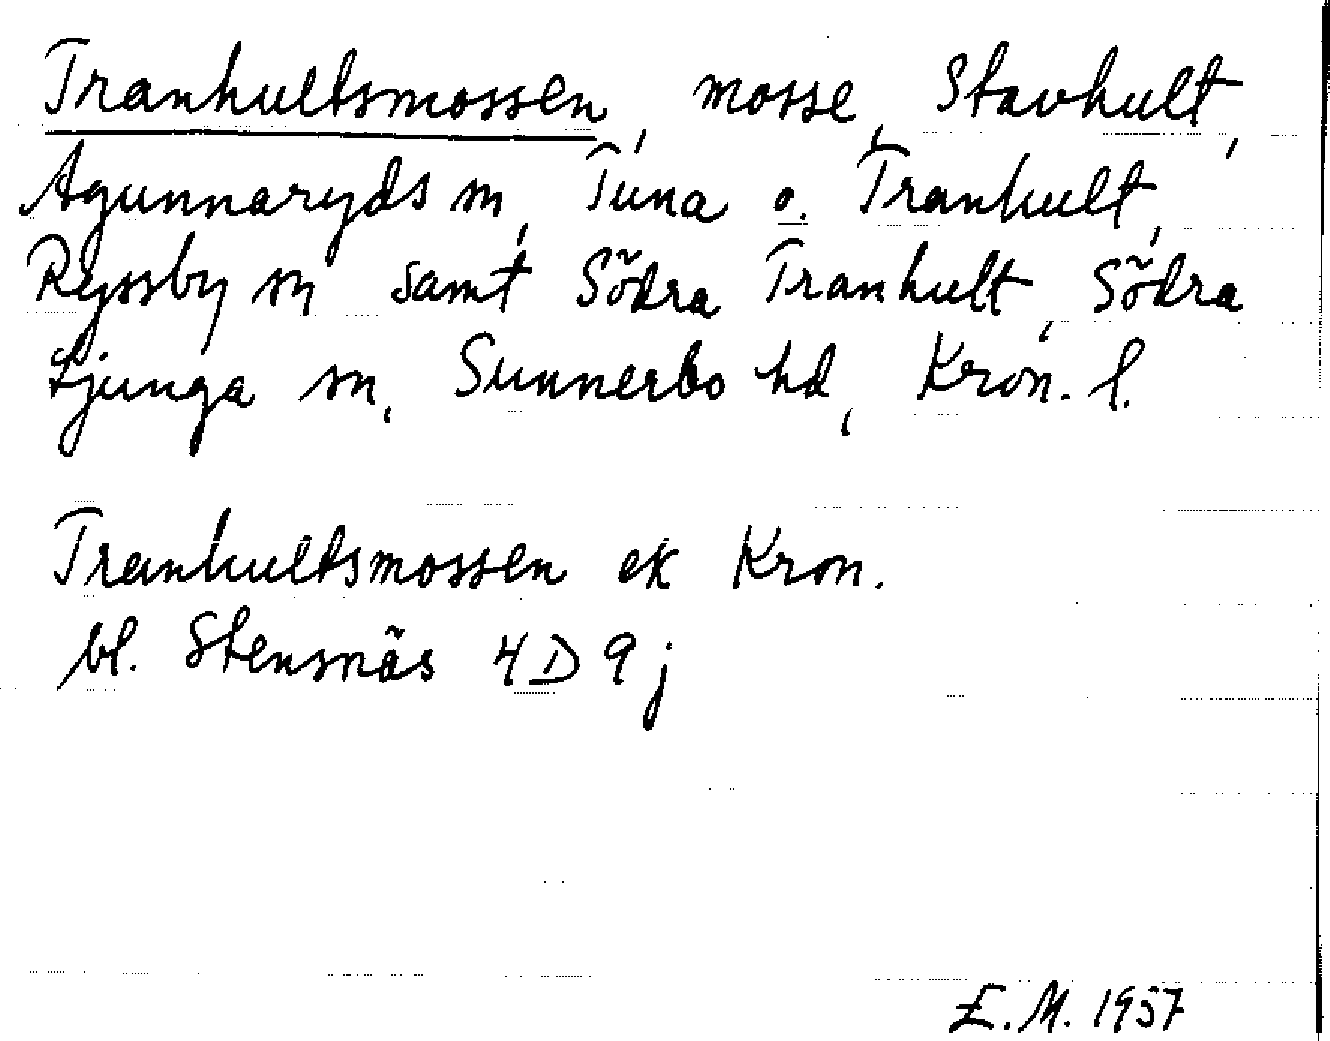 Tranhultsmossen, mosse, Stavhult,
Agunnaryds sn, Tuna o. Tranhult,
Ryssby sn samt Södra Tranhult, Södra
Ljunga sn, Sunnerbo hd, Kron. l.
Tranhultsmossen ek Kron.
bl. Stensnäs 4D 9j
E.M. 1957